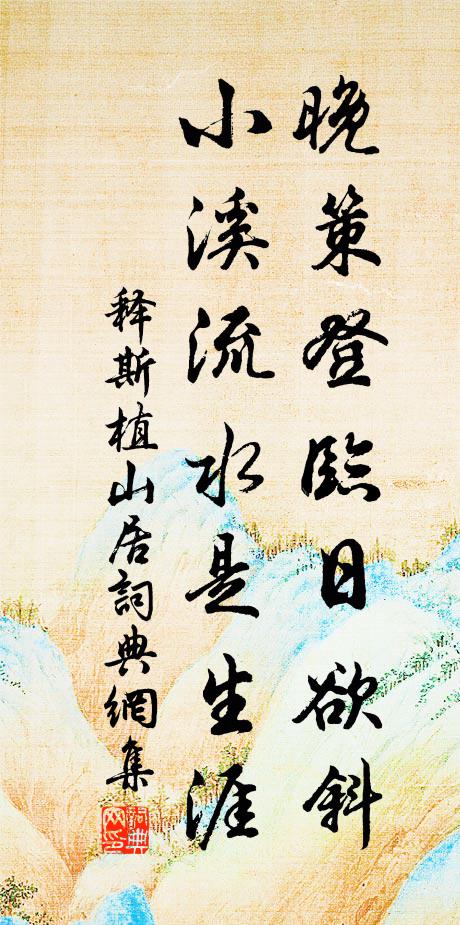 晚策登臨日欲斜
小溪流水是生涯
释斯植山居詞典網集
詞典网印